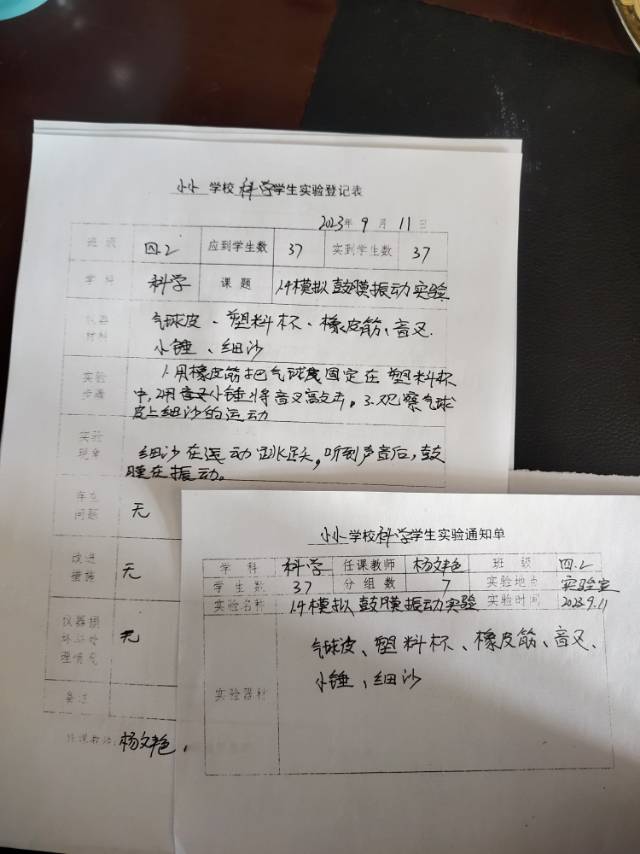 小小 学校 科学学生实验登记表
2023年 9 月 11 日
班级 四.2 应到学生数 37 实到学生数 37
学科 科学 课题 1.4模拟鼓膜振动实验
仪器材料
气球皮、塑料杯、橡皮筋、音叉、
小锤、细沙
实验步骤
1.用橡皮筋把气球皮固定在塑料杯
中,2.用音叉小锤将音叉敲击。3.观察气球
皮上细沙的运动
实验现象
细沙在运动跳跃,听到声音后,鼓
膜在振动。
存在问题 无
改进措施 无
仪器损坏及处理情况 无
备注
任课教师:杨文艳
小小学校科学学生实验通知单
学科 科学 任课教师 杨文艳 班级 四.2
学生数 37 分组数 7 实验地点 实验室
实验名称 1.4模拟鼓膜振动实验 实验时间 2023.9.11
实验器材
气球皮、塑料杯、橡皮筋、音叉、
小锤、细沙